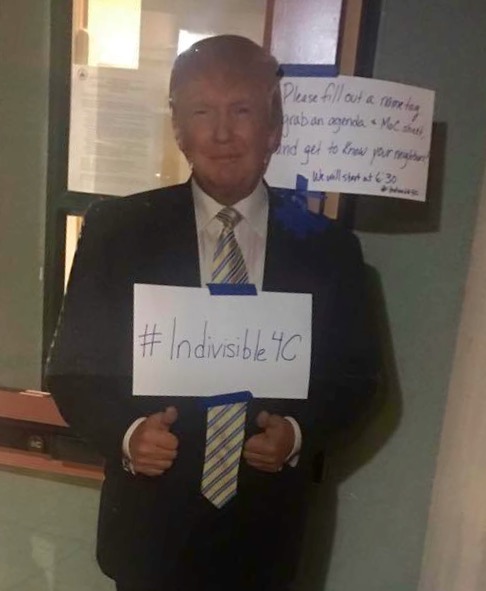 Please fill out a name tag
grab an agenda + MoC sheet,
and get to know your neighbors!
We will start at 6:30
#Indivisible4C